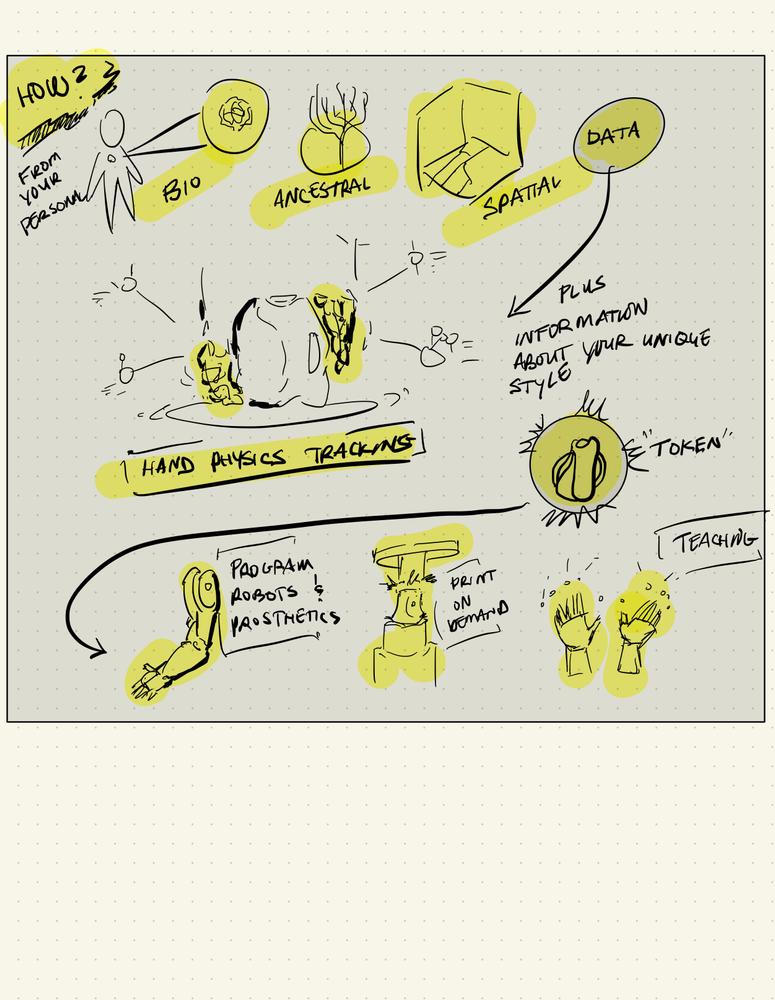 HOW?
FROM
YOUR
PERSONAL
BIO
ANCESTRAL
SPATIAL
DATA
PLUS
INFORMATION
ABOUT YOUR UNIQUE
STYLE
HAND PHYSICS TRACKING
"TOKEN"
PROGRAM
ROBOTS &
PROSTHETICS
PRINT
ON
DEMAND
TEACHING